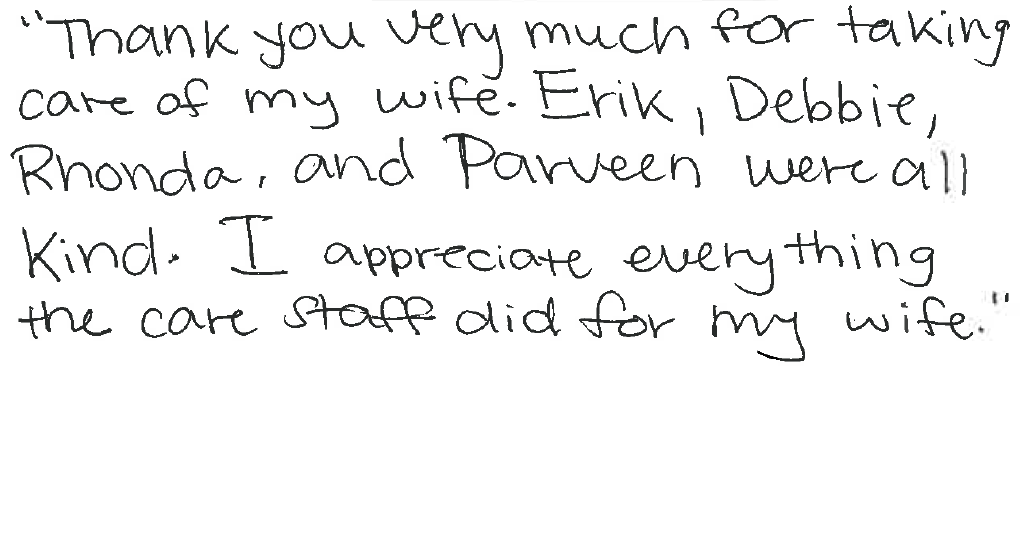 "Thank you very much for taking
care of my wife. Erik, Debbie,
Rhonda, and Parveen were all
Kind. I appreciate everything
the care staff did for my wife."